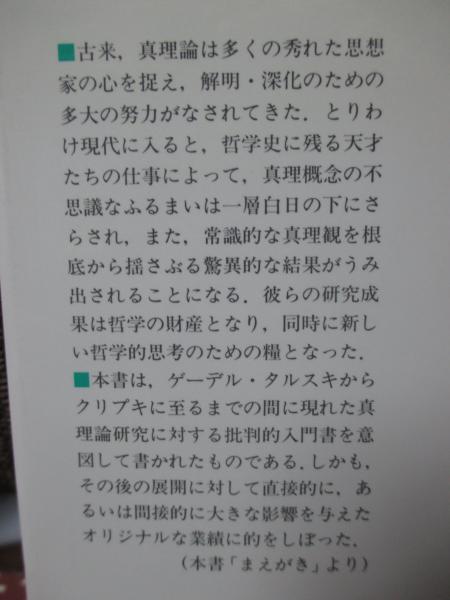 ■古来，真理論は多くの秀れた思想
家の心を捉え，解明・深化のための
多大の努力がなされてきた．とりわ
け現代に入ると，哲学史に残る天才
たちの仕事によって，真理概念の不
思議なふるまいは一層白日の下にさ
らされ，また，常識的な真理観を根
底から揺さぶる驚異的な結果がうみ
出されることになる．彼らの研究成
果は哲学の財産となり，同時に新し
い哲学的思考のための糧となった．
■本書は，ゲーデル・タルスキから
クリプキに至るまでの間に現れた真
理論研究に対する批判的入門書を意
図して書かれたものである．しかも，
その後の展開に対して直接的に，あ
るいは間接的に大きな影響を与えた
オリジナルな業績に的をしぼった．
（本書「まえがき」より）